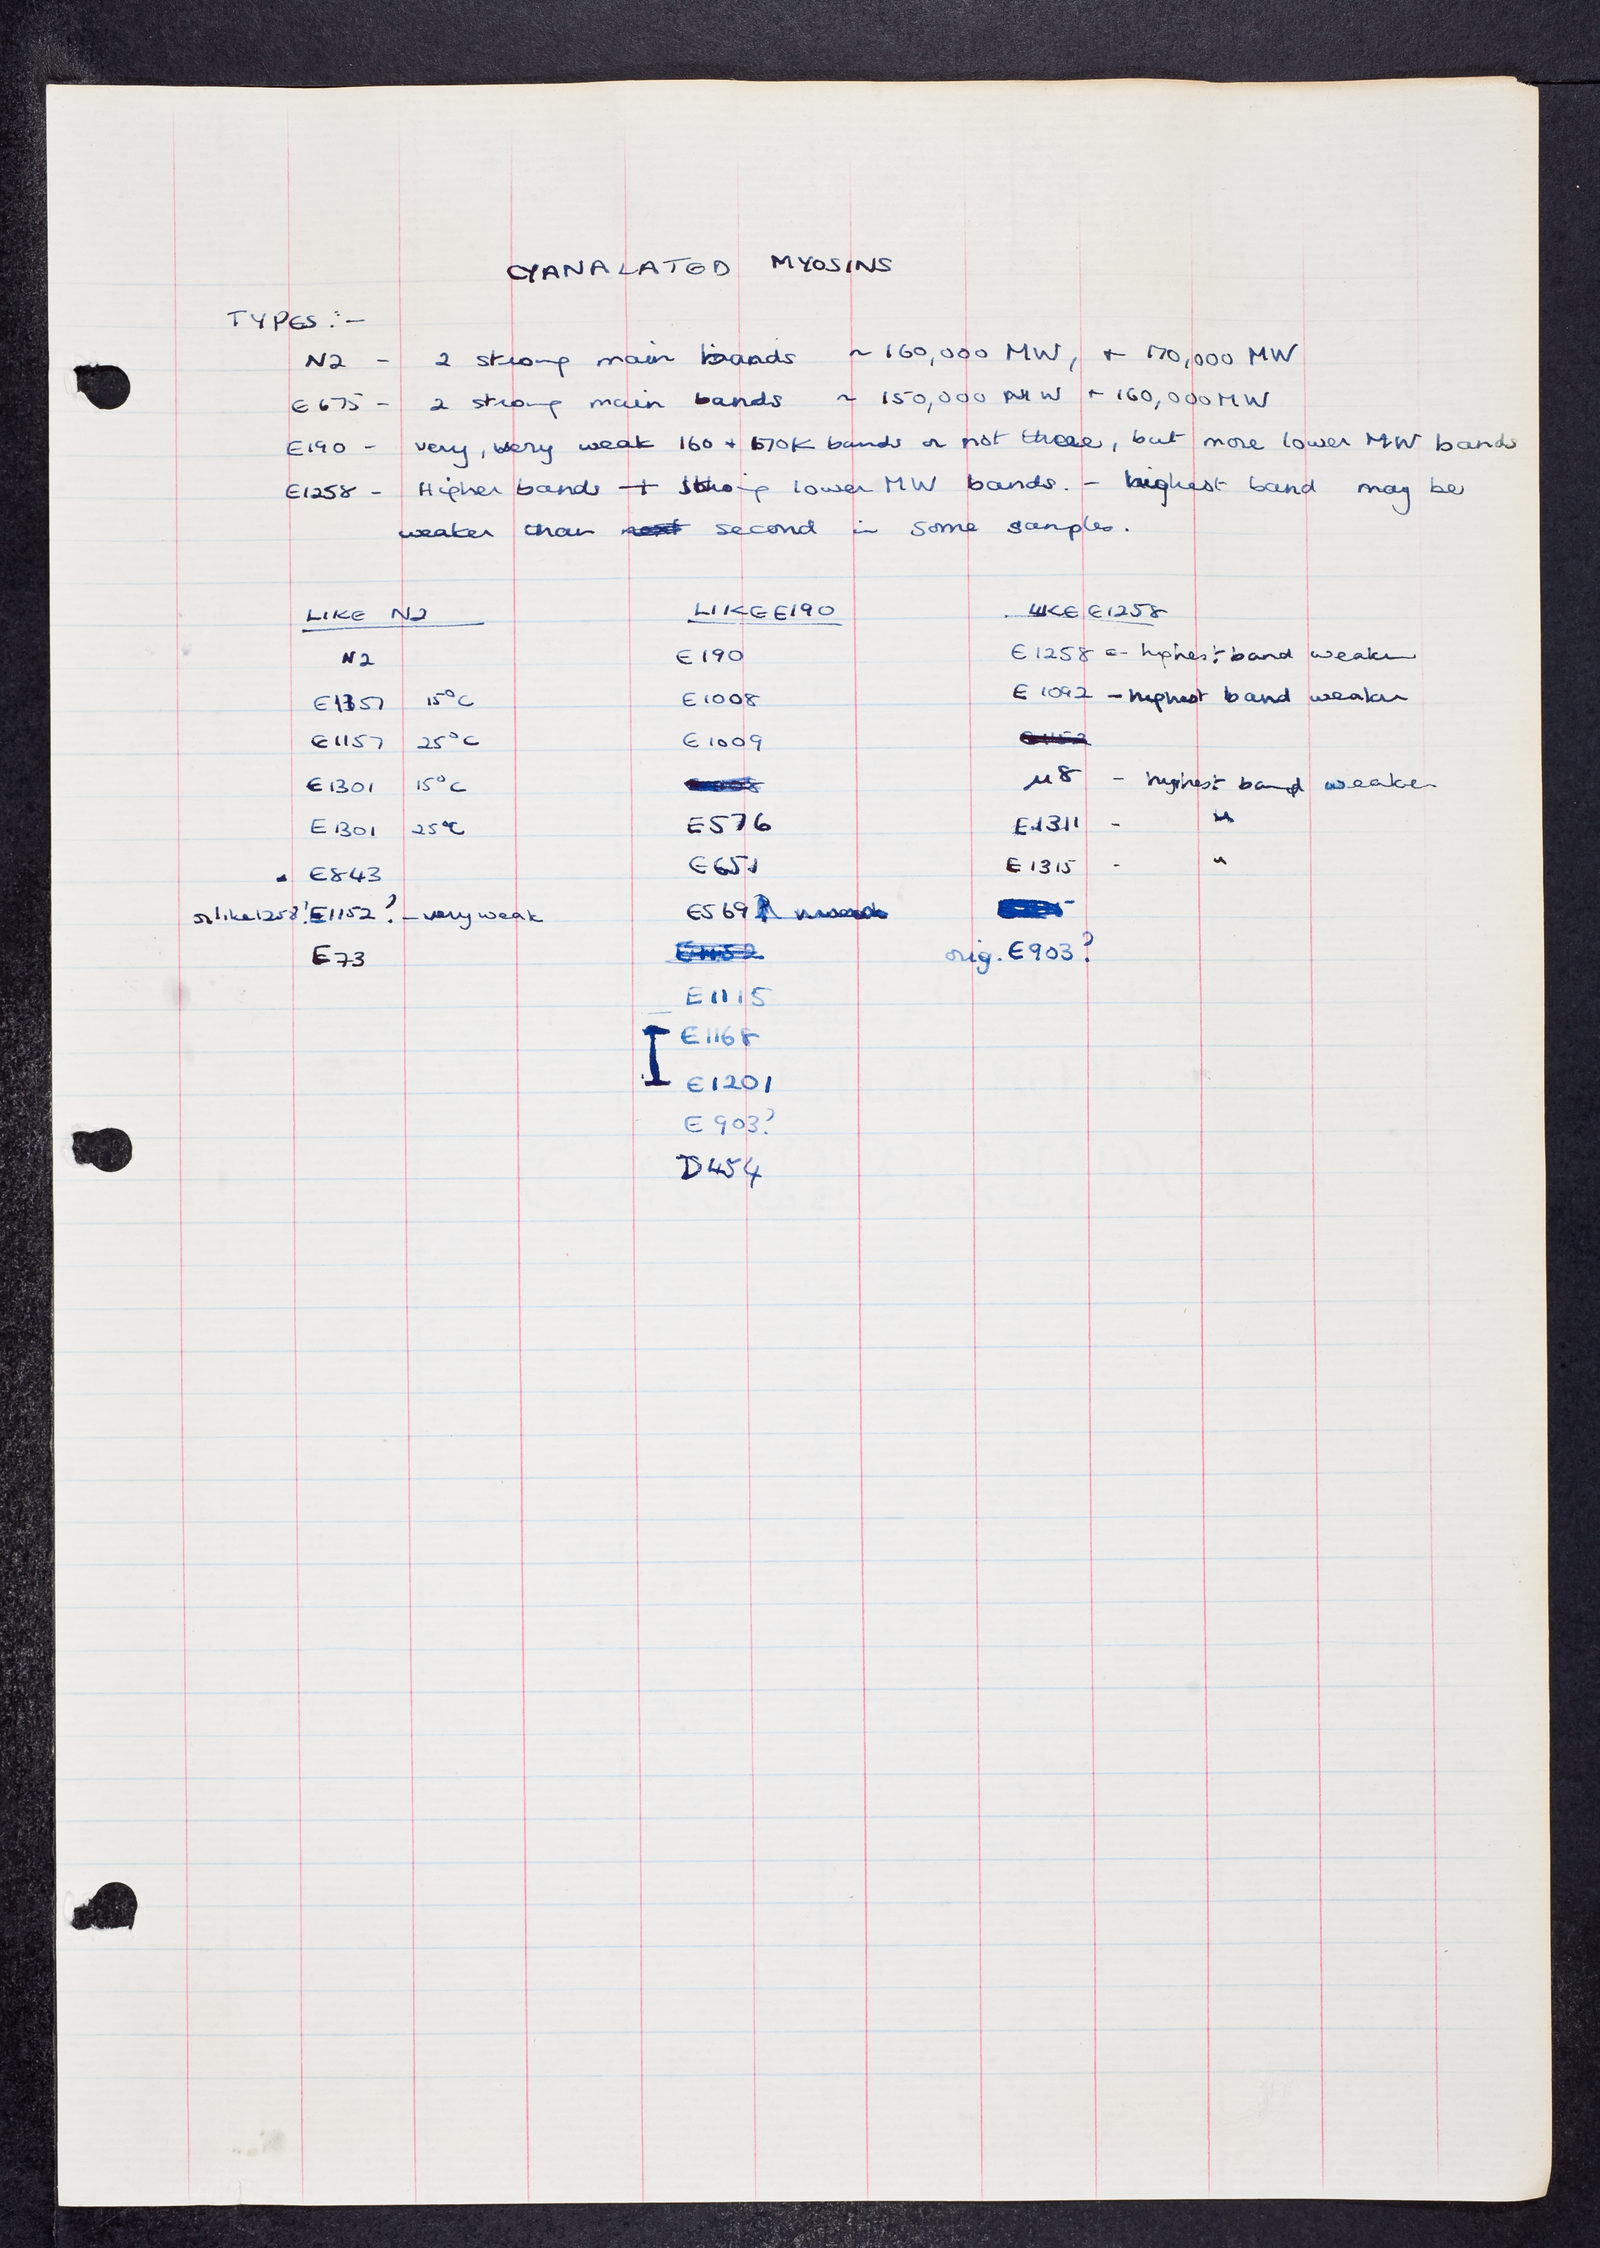 CYANALATED MYOSINS
TYPES:-
N2 - 2 strong main bands ~ 160,000 MW, + 170,000 MW
E675 - 2 strong main bands ~ 150,000 MW + 160,000 MW
E190 - very, very weak 160 + 170K bands or not there, but more lower MW bands
E1258 - Higher bands + strong lower MW bands. - highest band may be
weaker than second in some samples.
LIKE N2 LIKE E190 LIKE E1258
N2 E190 E1258 - highest band weaker
E1157 15°C E1008 E1092 - highest band weaker
E1157 25°C E1009 E1152
E1301 15°C µ8 - highest band weaker
E1301 25°C E576 E1311 - "
E843 E651 E1315 - "
or like 1258? E1152? - very weak E569
E73 E1152 orig. E903?
E1115
E1168
E1201
E903?
D454